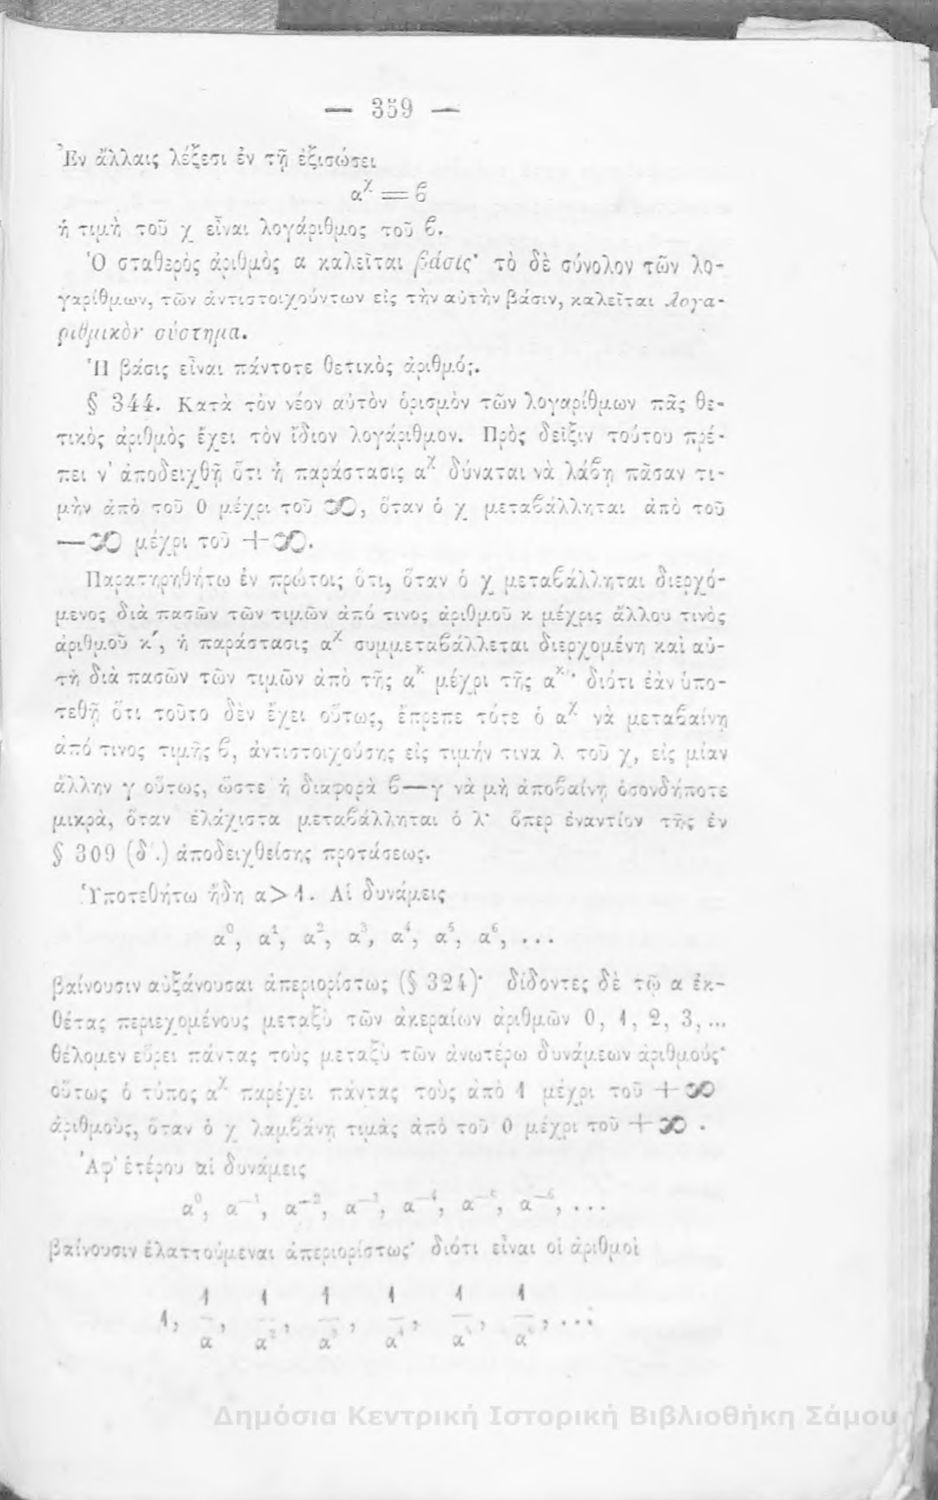 — 359 —
Ἐν ἄλλαις λέξεσι ἐν τῇ ἐξισώσει
αχ = ϐ
ἡ τιμὴ τοῦ χ εἶναι λογάριθμος τοῦ ϐ.
Ὁ σταθερὸς ἀριθμὸς α καλεῖται βάσις· τὸ δὲ σύνολον τῶν λο-
γαρίθμων, τῶν ἀντιστοιχούντων εἰς τὴν αὐτὴν βάσιν, καλεῖται λογα-
ριθμικὸν σύστημα.
Ἡ βάσις εἶναι πάντοτε θετικὸς ἀριθμός.
§ 344. Κατὰ τὸν νέον αὐτὸν ὁρισμὸν τῶν λογαρίθμων πᾶς θε-
τικὸς ἀριθμὸς ἔχει τὸν ἴδιον λογάριθμον. Πρὸς δεῖξιν τούτου πρέ-
πει ν' ἀποδειχθῇ ὅτι ἡ παράστασις αχ δύναται νὰ λάϐῃ πᾶσαν τι-
μὴν ἀπὸ τοῦ 0 μέχρι τοῦ ∞, ὅταν ὁ χ μεταϐάλληται ἀπὸ τοῦ
—∞ μέχρι τοῦ +∞.
Παρατηρηθήτω ἐν πρώτοις ὅτι, ὅταν ὁ χ μεταϐάλληται διερχό-
μενος διὰ πασῶν τῶν τιμῶν ἀπό τινος ἀριθμοῦ κ μέχρις ἄλλου τινὸς
ἀριθμοῦ κ', ἡ παράστασις αχ συμμεταϐάλλεται διερχομένη καὶ αὐ-
τὴ διὰ πασῶν τῶν τιμῶν ἀπὸ τῆς ακ μέχρι τῆς ακ'· διότι ἐὰν ὑπο-
τεθῇ ὅτι τοῦτο δὲν ἔχει οὕτως, ἔπρεπε τότε ὁ αχ νὰ μεταϐαίνῃ
ἀπό τινος τιμῆς ϐ, ἀντιστοιχούσης εἰς τιμήν τινα λ τοῦ χ, εἰς μίαν
ἄλλην γ οὕτως, ὥστε ἡ διαφορὰ ϐ—γ νὰ μὴ ἀποϐαίνῃ ὁσονδήποτε
μικρὰ, ὅταν ἐλάχιστα μεταϐάλληται ὁ λ· ὅπερ ἐναντίον τῆς ἐν
§ 309 (δ'.) ἀποδειχθείσης προτάσεως.
Ὑποτεθήτω ἤδη α>1. Αἱ δυνάμεις
α⁰, α¹, α², α³, α⁴, α⁵, α⁶, ...
βαίνουσιν αὐξάνουσαι ἀπεριορίστως (§ 324)· δίδοντες δὲ τῷ α ἐκ-
θέτας περιεχομένους μεταξὺ τῶν ἀκεραίων ἀριθμῶν 0, 1, 2, 3, ...
θέλομεν εὕρει πάντας τοὺς μεταξὺ τῶν ἀνωτέρω δυνάμεων ἀριθμούς·
οὕτως ὁ τύπος αχ παρέχει πάντας τοὺς ἀπὸ 1 μέχρι τοῦ +∞
ἀριθμοὺς, ὅταν ὁ χ λαμϐάνῃ τιμὰς ἀπὸ τοῦ 0 μέχρι τοῦ +∞ .
Ἀφ' ἑτέρου αἱ δυνάμεις
α⁰, α⁻¹, α⁻², α⁻³, α⁻⁴, α⁻⁵, α⁻⁶, ...
βαίνουσιν ἐλαττούμεναι ἀπεριορίστως· διότι εἶναι οἱ ἀριθμοὶ
1, 1/α, 1/α², 1/α³, 1/α⁴, 1/α⁵, 1/α⁶, ...
Δημόσια Κεντρική Ιστορική Βιβλιοθήκη Σάμου